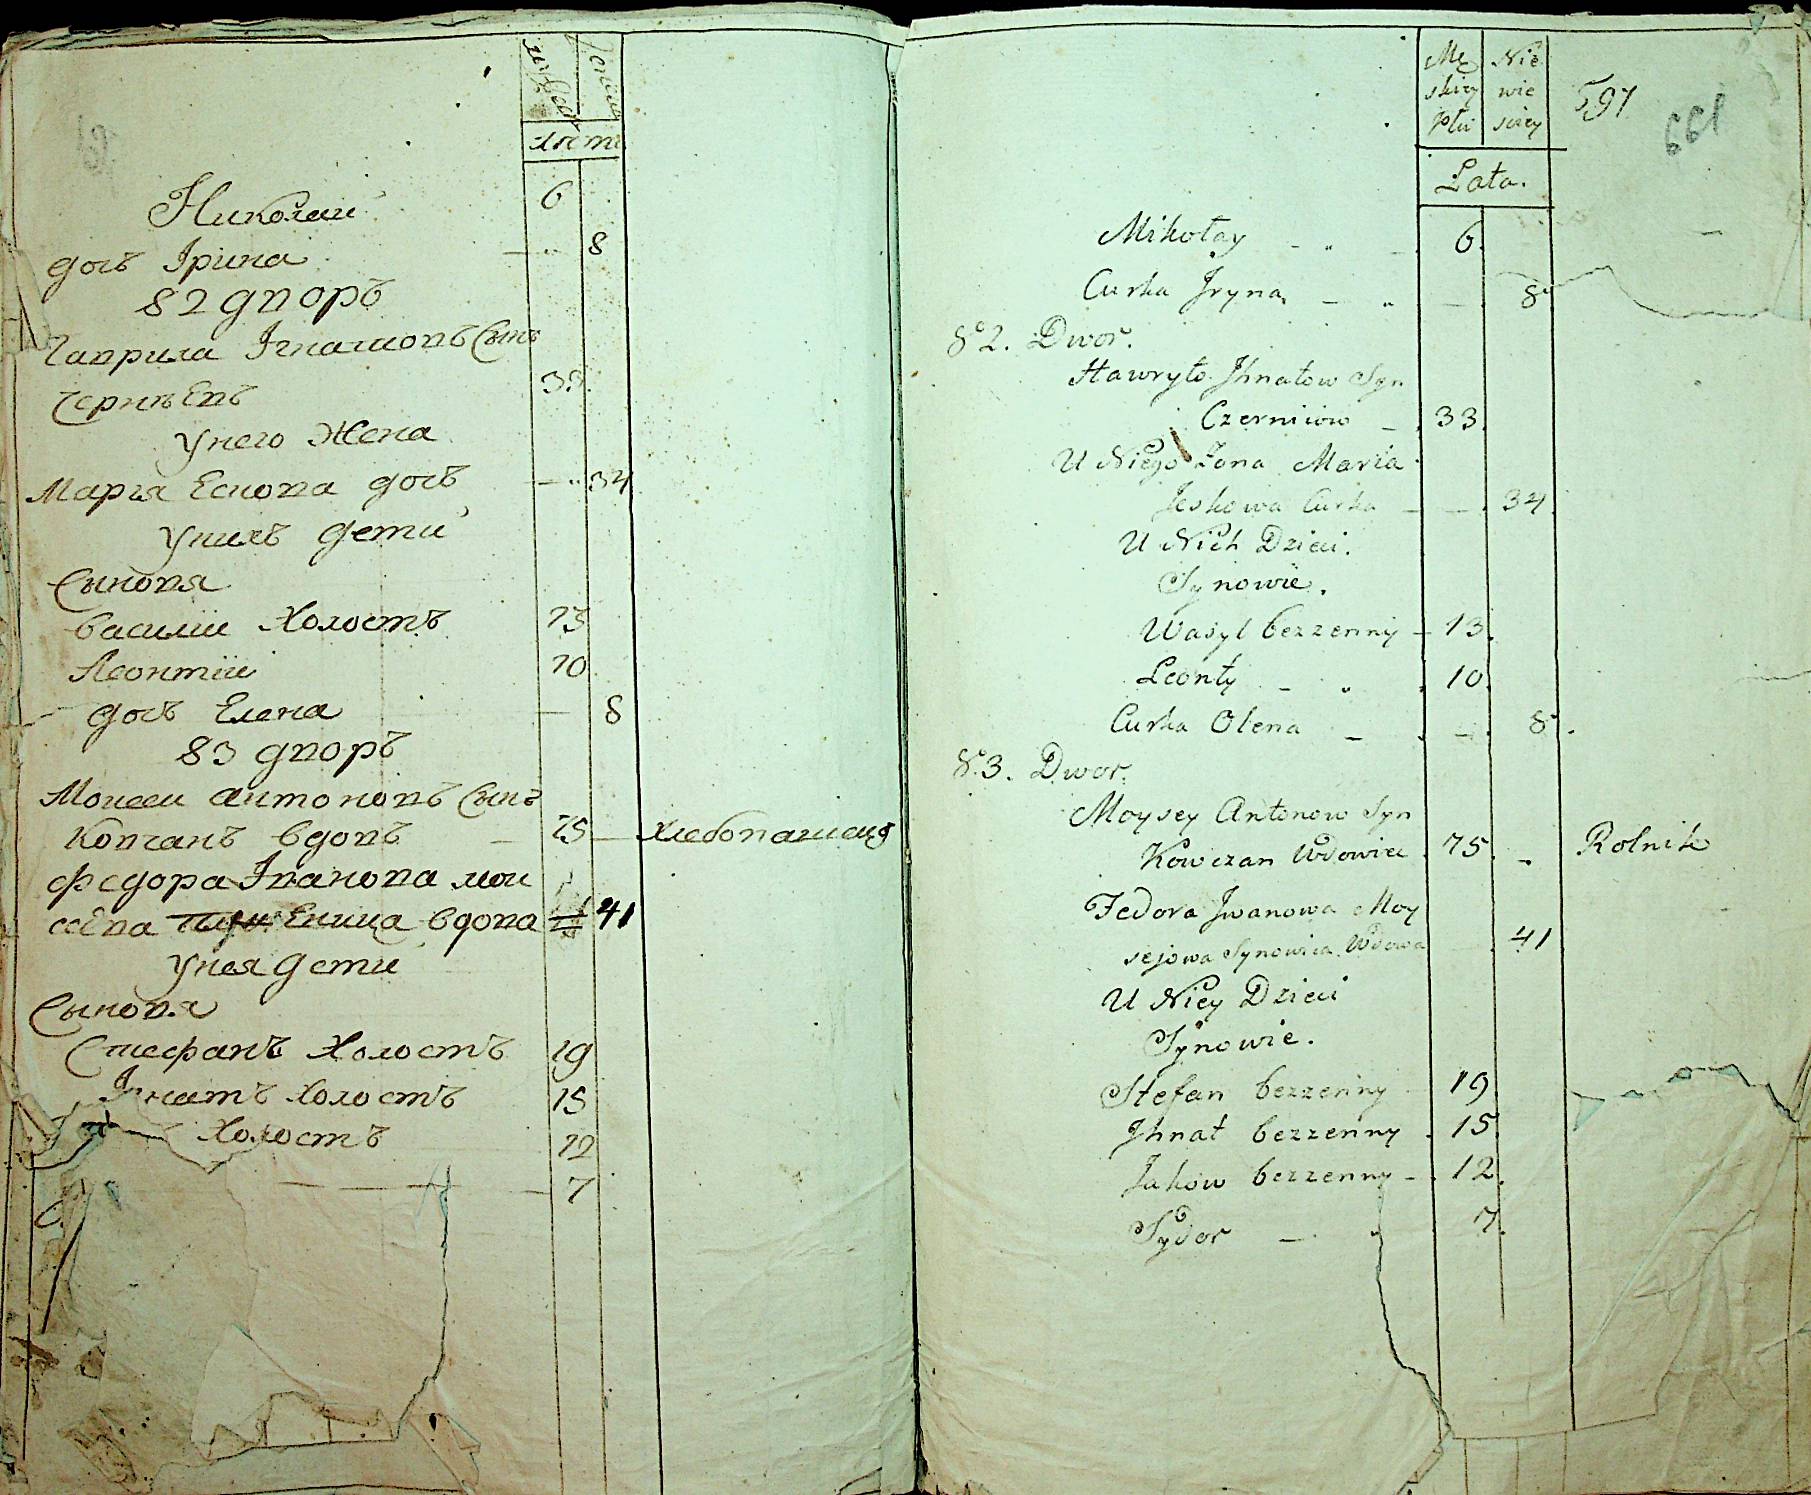 лѣта
Николай 6
дочь Ірина — 8
82 дворъ
Гаврила Ігнатовъ Сынъ
Чернѣевъ 33.
У него Жена
Марья Ескова дочь — 34
У нихъ дети
Сыновя
Василій Холостъ 13
Леонтій 10
дочь Елена — 8
83 дворъ
Моисей антоновъ Сынъ
Ковчанъ вдовъ — 75 — Хлебопашецъ
федора Іванова мои
сеева Еница вдова 41
У нея дети
Сыновя
Стефанъ Холостъ 19
Ігнатъ Холостъ 15
Холостъ 12
7
Mę Nie
skiey wie 597
Płci sciey 199
Lata.
Mikołay - " - 6.
Curka Jryna, - " - 8
82. Dwor.
Hawryło Jhnatow Syn
Czerniiow - 33.
U Niego Żona Maria
Jeskowa Curka - - 34.
U Nich Dzieci.
Synowie.
Wasyl bezzenny - 13.
Leonty - " 10.
Curka Olena - - 8.
83. Dwor.
Moysey Antonow Syn
Kowczan Wdowiec 75. - Rolnik
Fedora Jwanowa Moy
sejowa Synowica Wdowa 41
U Niey Dzieci
Synowie.
Stefan bezzenny 19
Jhnat bezzenny 15
Jakow bezzenny - 12.
Sydor - " 7.